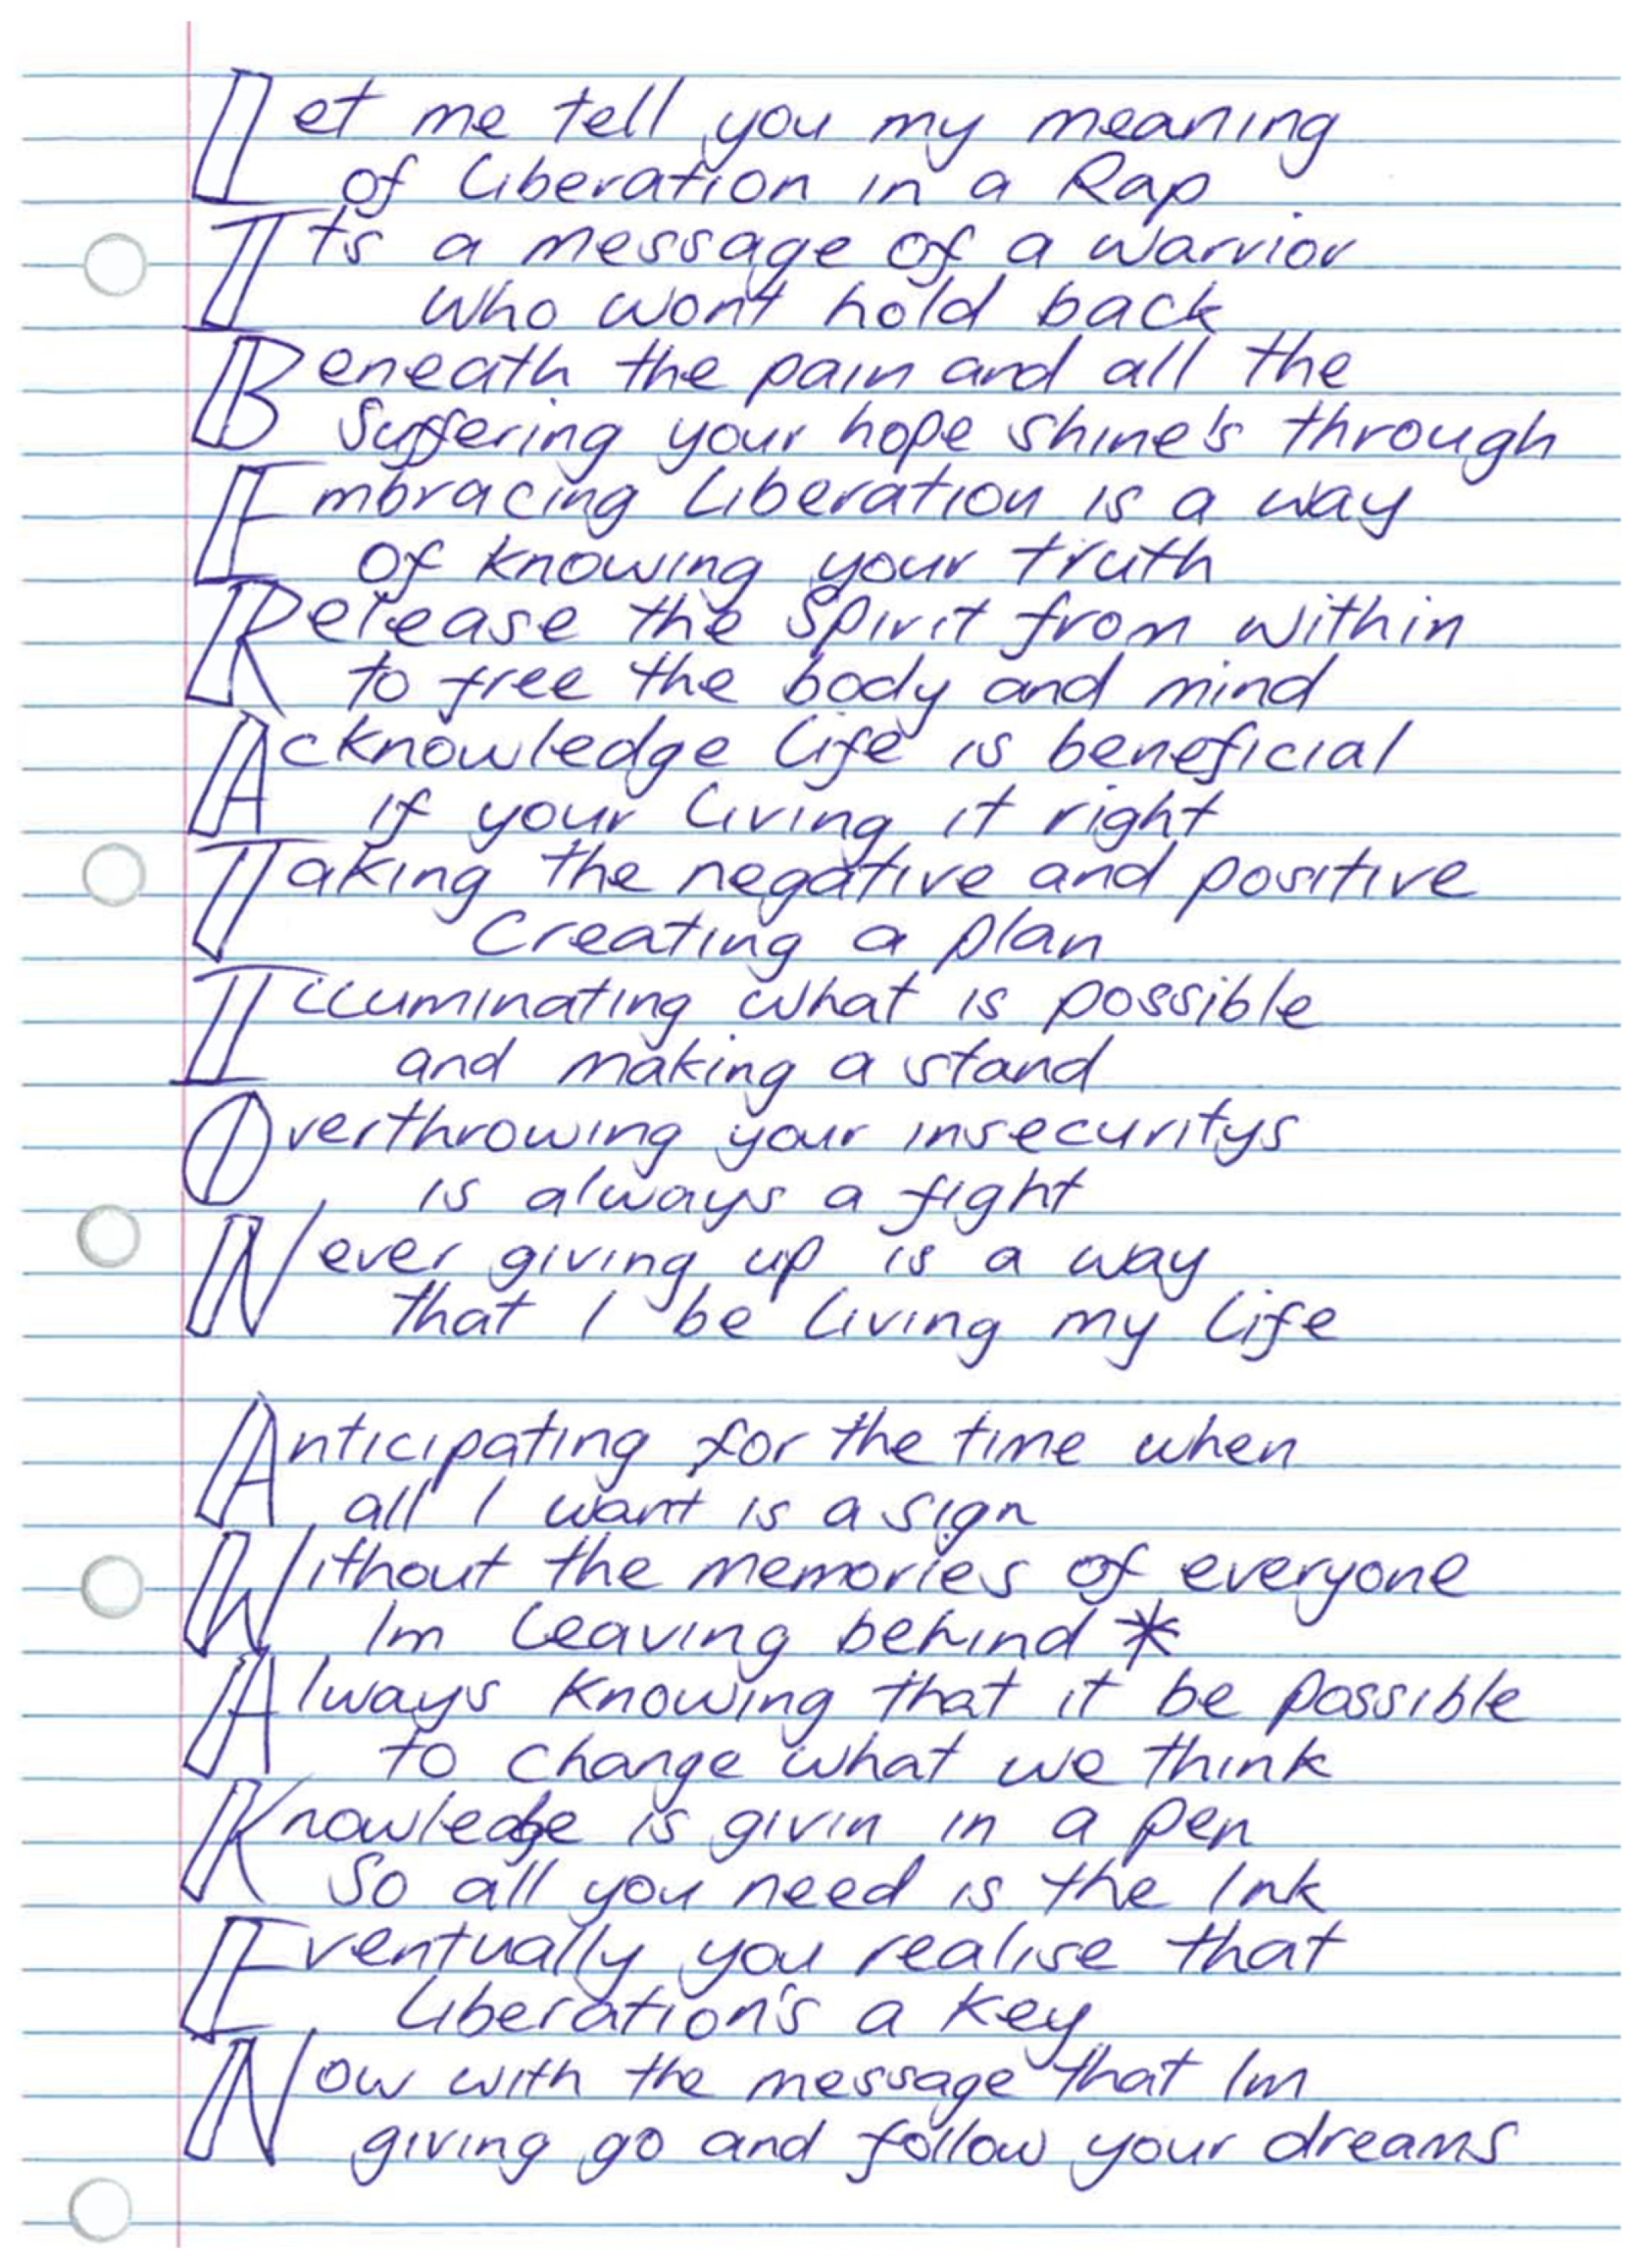 Let me tell you my meaning
of Liberation in a Rap
Its a message of a warrior
who wont hold back
Beneath the pain and all the
Suffering your hope shine's through
Embracing Liberation is a way
of knowing your truth
Release the Spirit from within
to free the body and mind
Acknowledge life is beneficial
if your living it right
Taking the negative and positive
Creating a plan
Illuminating what is possible
and making a stand
Overthrowing your insecuritys
is always a fight
Never giving up is a way
that I be living my life
Anticipating for the time when
all I want is a sign
Without the memories of everyone
Im leaving behind *
Always knowing that it be possible
to change what we think
Knowledge is givin in a pen
So all you need is the Ink
Eventually you realise that
Liberation's a key
Now with the message that Im
giving go and follow your dreams